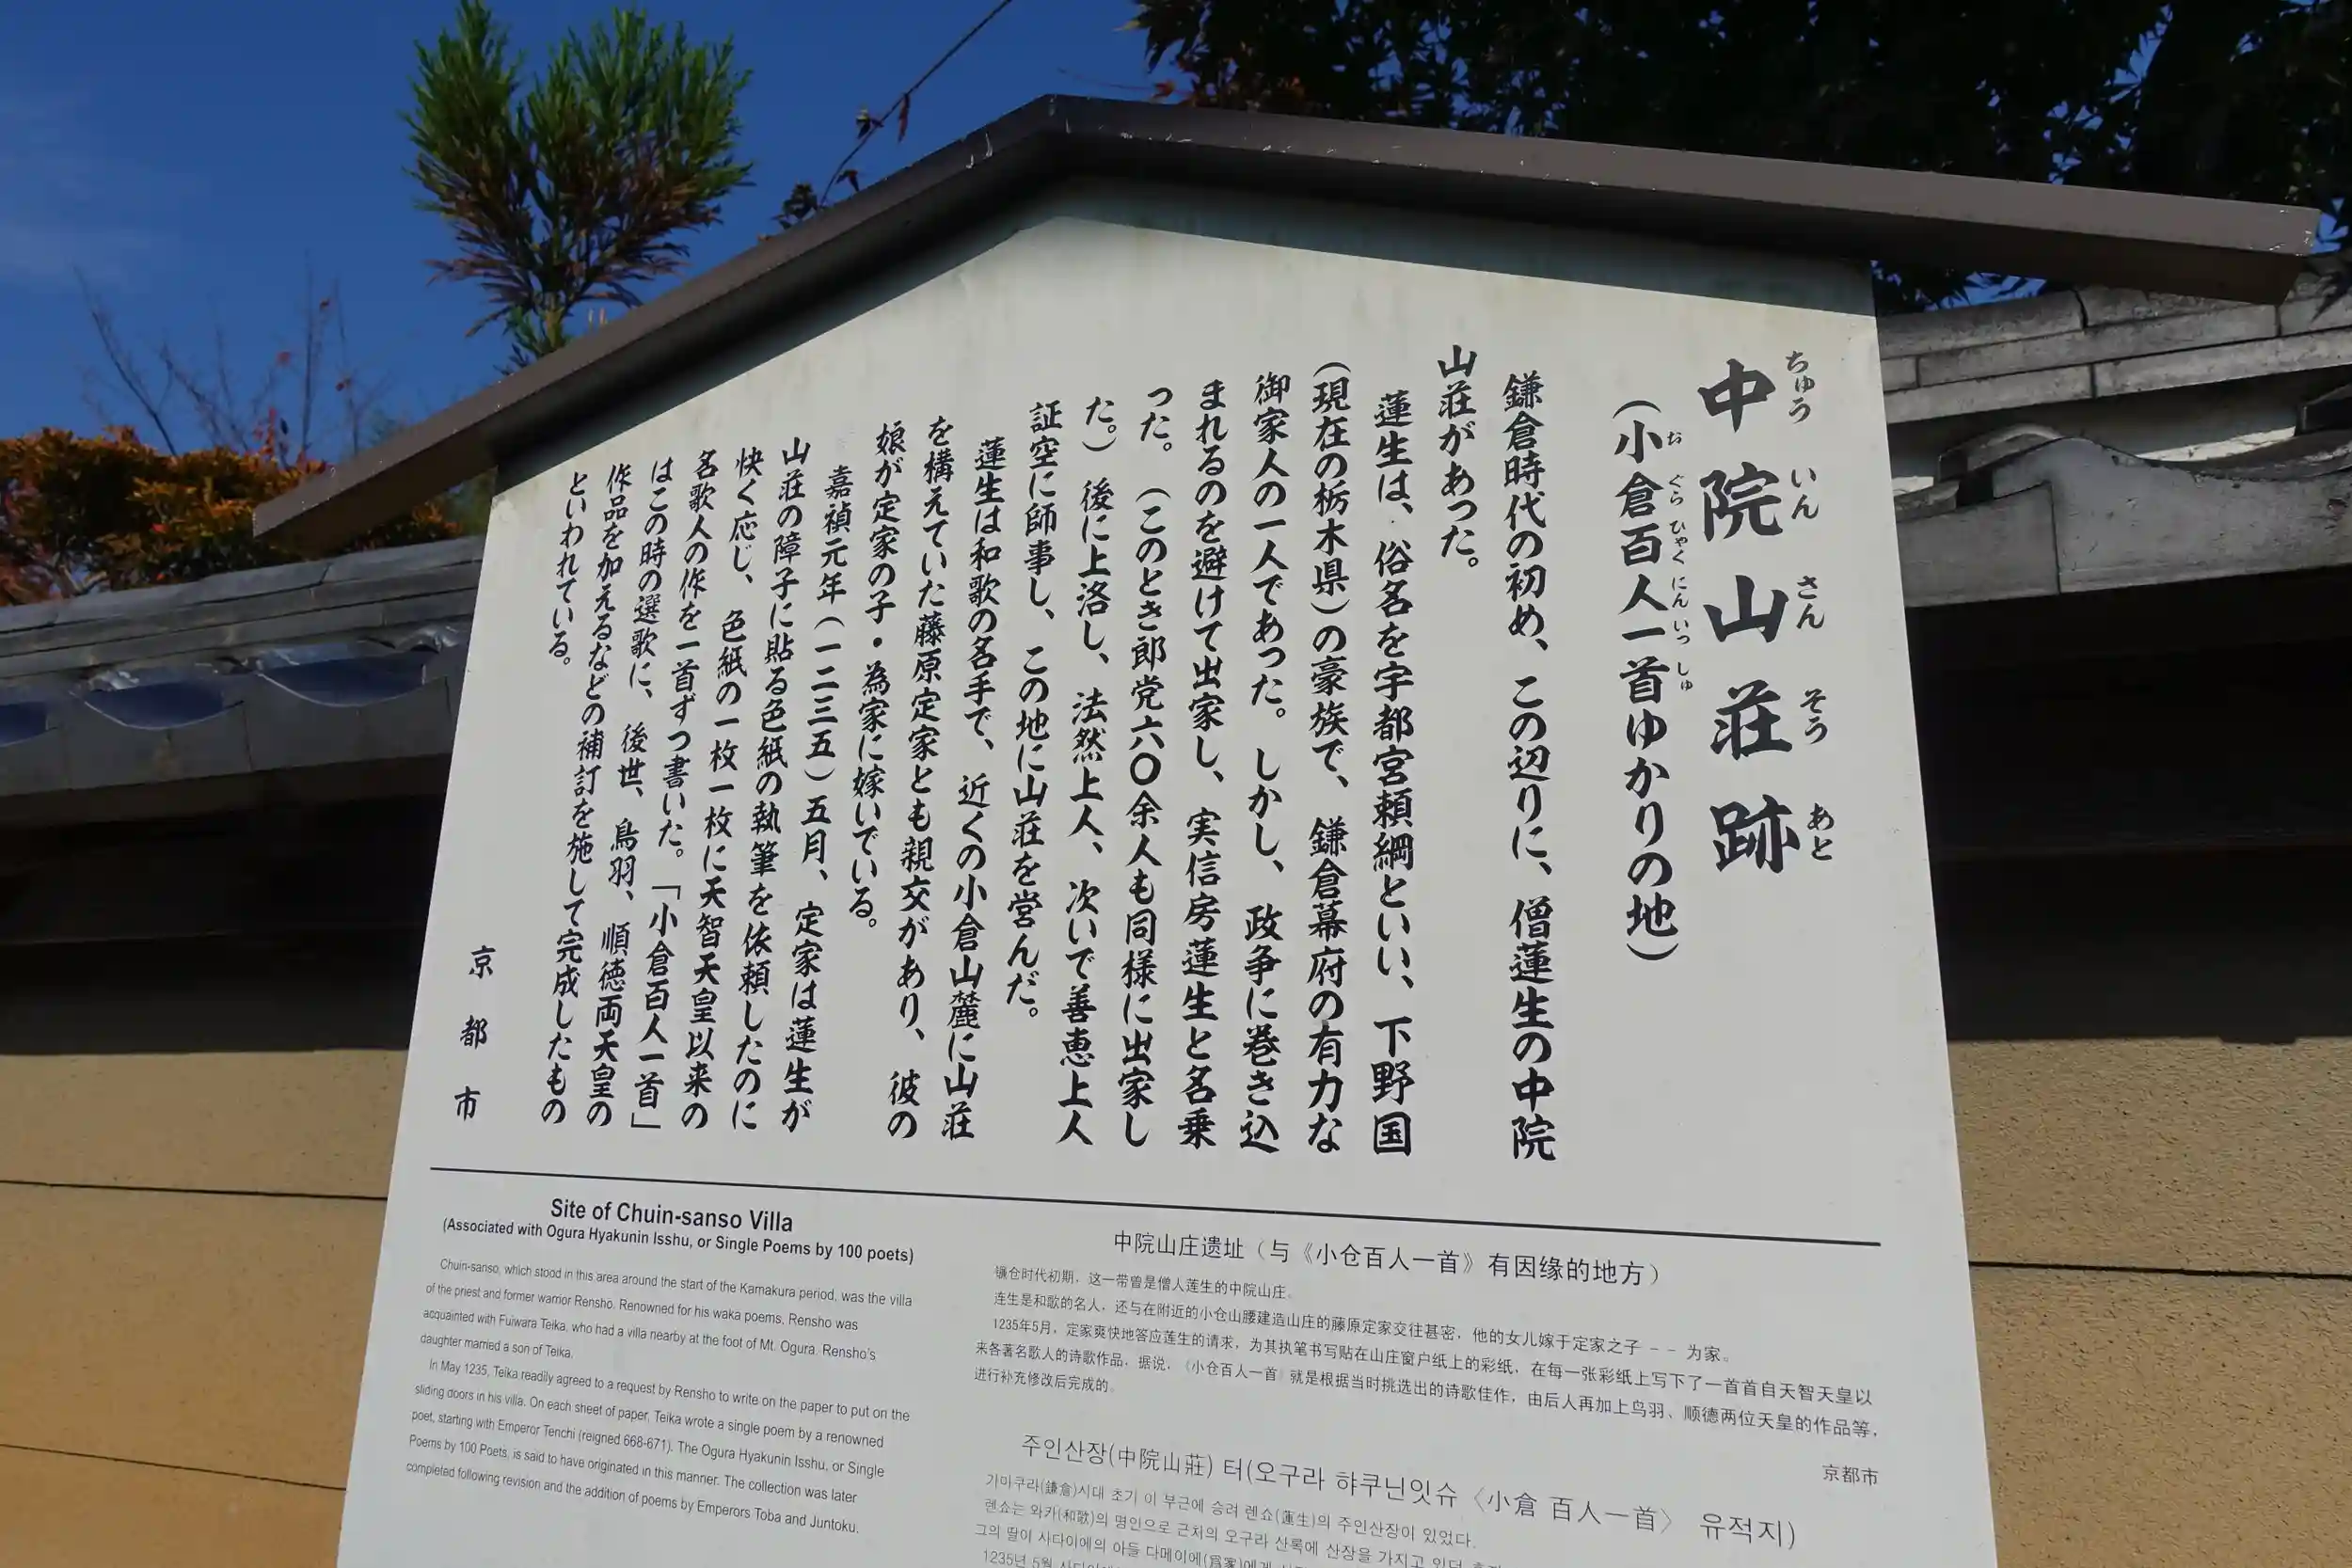 中院山荘跡
ちゅういんさんそうあと
（小倉百人一首ゆかりの地）
おぐらひゃくにんいっしゅ
鎌倉時代の初め、この辺りに、僧蓮生の中院
山荘があった。
蓮生は、俗名を宇都宮頼綱といい、下野国
（現在の栃木県）の豪族で、鎌倉幕府の有力な
御家人の一人であった。しかし、政争に巻き込
まれるのを避けて出家し、実信房蓮生と名乗
った。（このとき郎党六〇余人も同様に出家し
た。）後に上洛し、法然上人、次いで善恵上人
証空に師事し、この地に山荘を営んだ。
蓮生は和歌の名手で、近くの小倉山麓に山荘
を構えていた藤原定家とも親交があり、彼の
娘が定家の子・為家に嫁いでいる。
嘉禎元年（一二三五）五月、定家は蓮生が
山荘の障子に貼る色紙の執筆を依頼したのに
快く応じ、色紙の一枚一枚に天智天皇以来の
名歌人の作を一首ずつ書いた。「小倉百人一首」
はこの時の選歌に、後世、鳥羽、順徳両天皇の
作品を加えるなどの補訂を施して完成したもの
といわれている。
京都市
Site of Chuin-sanso Villa
(Associated with Ogura Hyakunin Isshu, or Single Poems by 100 poets)
Chuin-sanso, which stood in this area around the start of the Kamakura period, was the villa
of the priest and former warrior Rensho. Renowned for his waka poems, Rensho was
acquainted with Fuiwara Teika, who had a villa nearby at the foot of Mt. Ogura. Rensho's
daughter married a son of Teika.
In May 1235, Teika readily agreed to a request by Rensho to write on the paper to put on the
sliding doors in his villa. On each sheet of paper, Teika wrote a single poem by a renowned
poet, starting with Emperor Tenchi (reigned 668-671). The Ogura Hyakunin Isshu, or Single
Poems by 100 Poets, is said to have originated in this manner. The collection was later
completed following revision and the addition of poems by Emperors Toba and Juntoku.
中院山庄遗址（与《小仓百人一首》有因缘的地方）
镰仓时代初期，这一带曾是僧人莲生的中院山庄。
连生是和歌的名人，还与在附近的小仓山腰建造山庄的藤原定家交往甚密，他的女儿嫁于定家之子 -- 为家。
1235年5月，定家爽快地答应莲生的请求，为其执笔书写贴在山庄窗户纸上的彩纸，在每一张彩纸上写下了一首首自天智天皇以
来各著名歌人的诗歌作品，据说，《小仓百人一首》就是根据当时挑选出的诗歌佳作，由后人再加上鸟羽、顺德两位天皇的作品等，
进行补充修改后完成的。
京都市
주인산장(中院山莊) 터(오구라 햐쿠닌잇슈〈小倉 百人一首〉 유적지)
가마쿠라(鎌倉)시대 초기 이 부근에 승려 렌쇼(蓮生)의 주인산장이 있었다.
렌쇼는 와카(和歌)의 명인으로 근처의 오구라 산록에 산장을 가지고 있던
그의 딸이 사다이에의 아들 다메이에(爲家)에게
1235년 5월